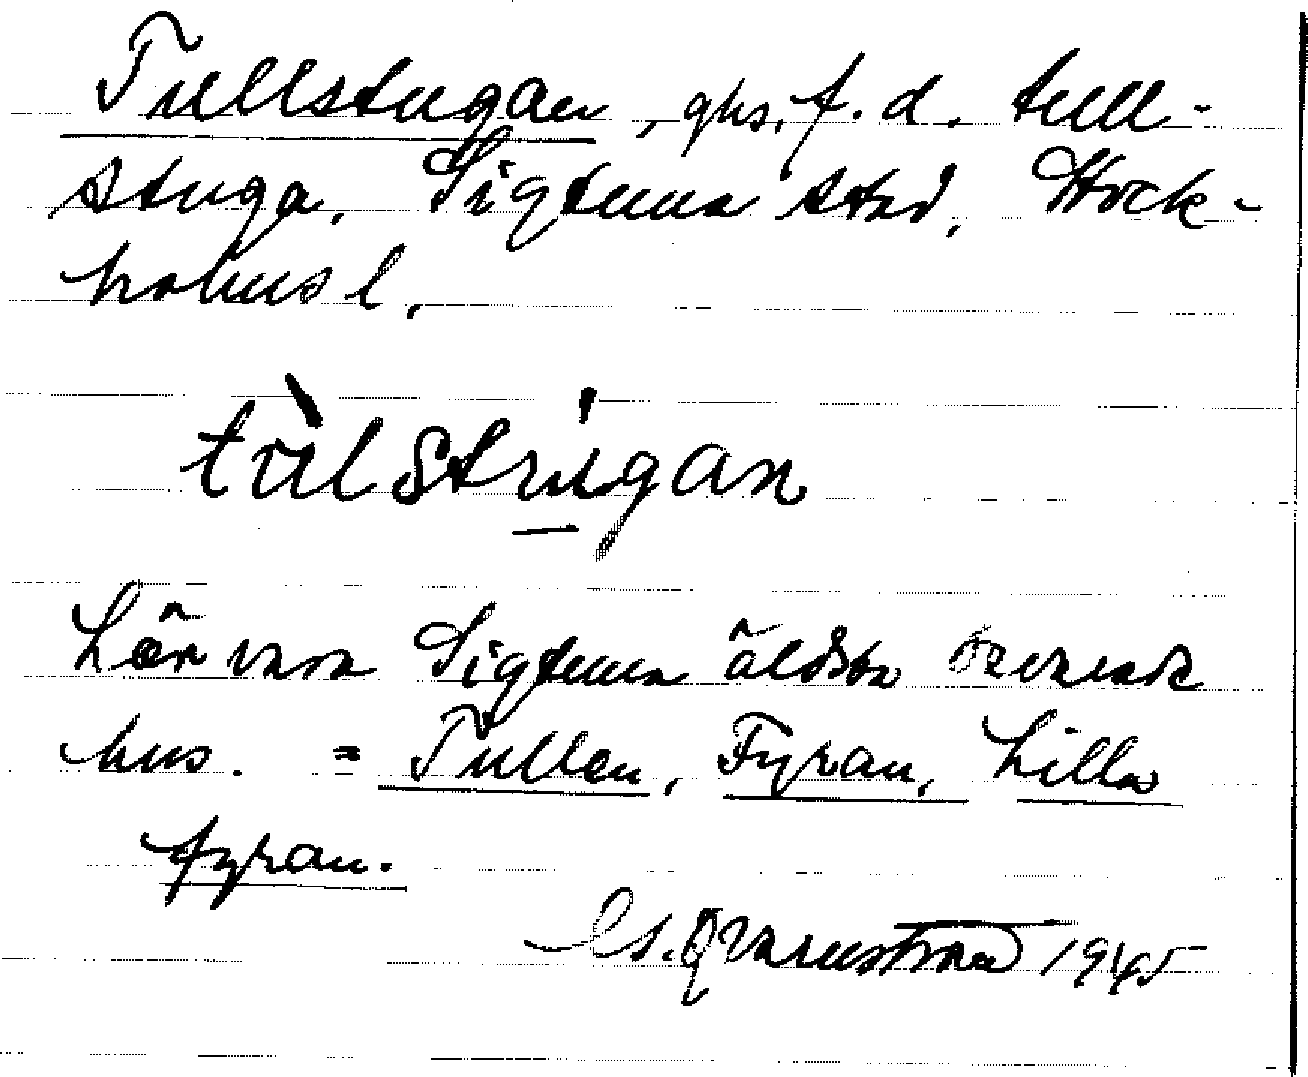 Tullstugan, ghs, f.d. tull-
stuga. Sigtuna stad, Stock-
holms l.
tùlstúgan
Lär vara Sigtuna äldsta
hus. = Tullen, Fyran, Lilla
fyran.
Qvarnström 1945